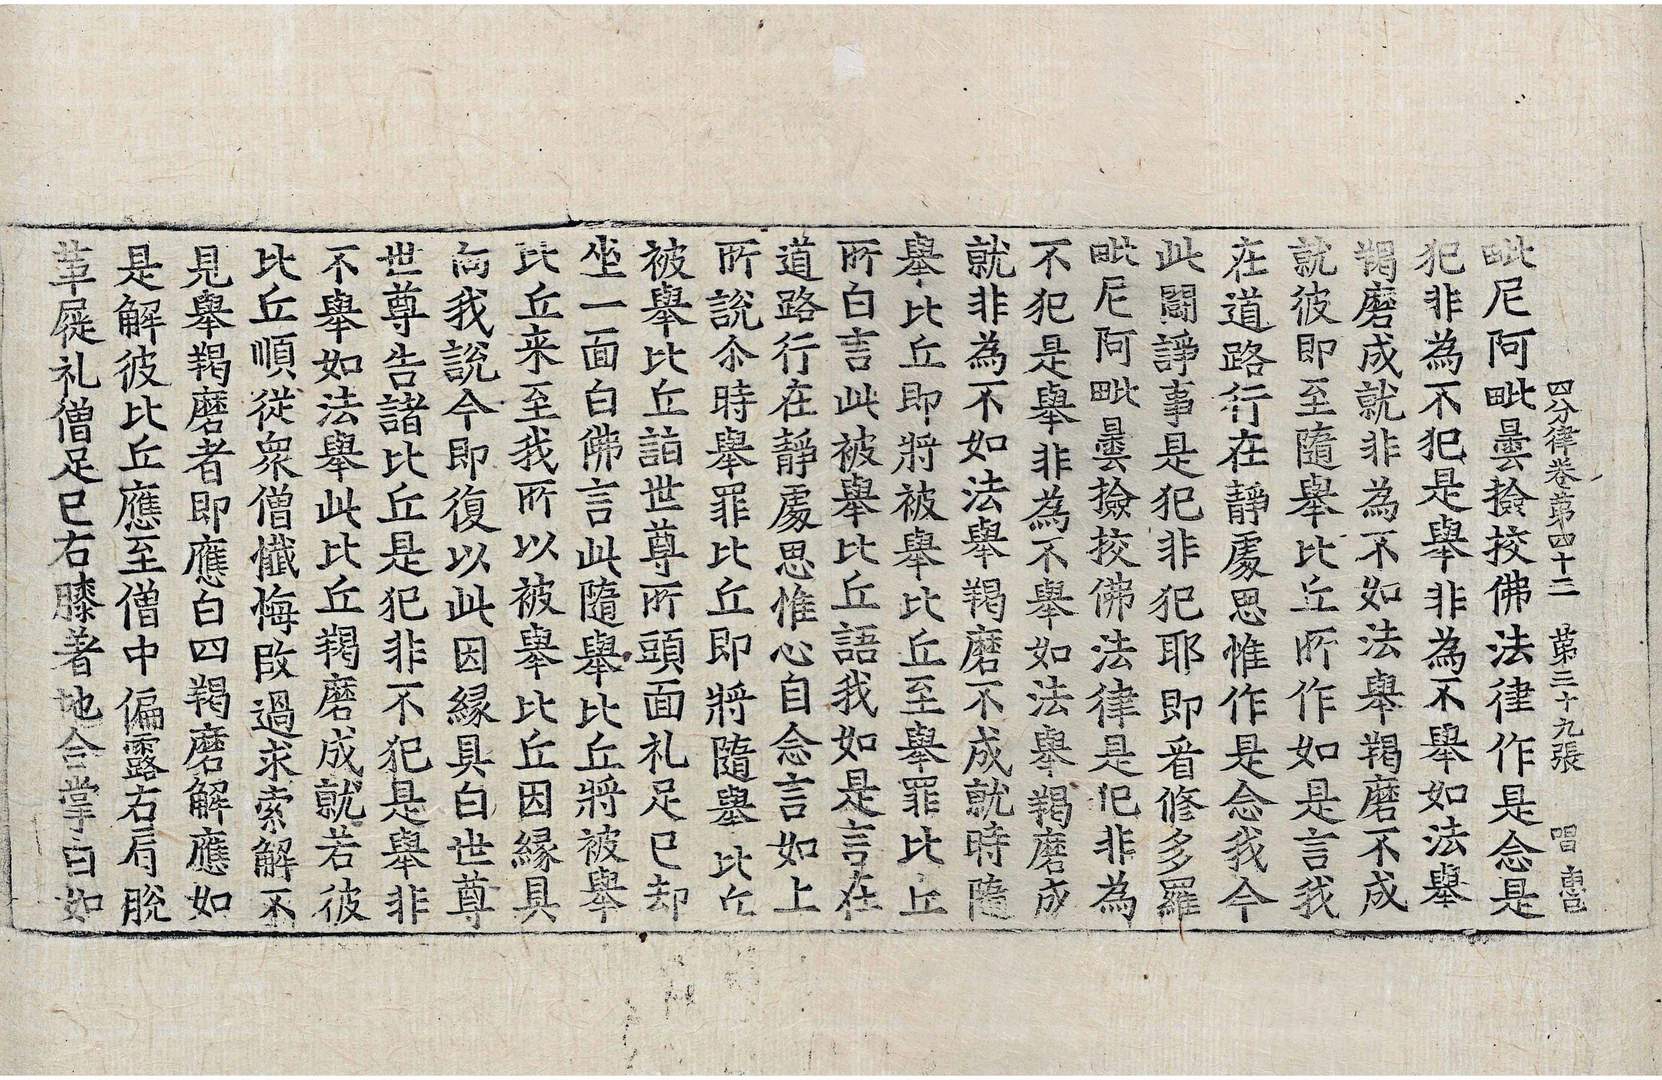 四分律卷第四十三 第三十九張 唱
毗尼阿毗曇撿挍佛法律作是念是
犯非為不犯是舉非為不舉如法舉
羯磨成就非為不如法舉羯磨不成
就彼即至隨舉比丘所作如是言我
在道路行在靜處思惟作是念我今
此鬪諍事是犯非犯耶即看修多羅
毗尼阿毗曇撿挍佛法律是犯非為
不犯是舉非為不舉如法舉羯磨成
就非為不如法舉羯磨不成就時隨
舉比丘即將被舉比丘至舉罪比丘
所白言此被舉比丘語我如是言在
道路行在靜處思惟心自念言如上
所說尒時舉罪比丘即將隨舉比丘
被舉比丘詣世尊所頭面礼足已却
坐一面白佛言此隨舉比丘將被舉
比丘来至我所以被舉比丘因緣具
向我說今即復以此因緣具白世尊
世尊告諸比丘是犯非不犯是舉非
不舉如法舉此比丘羯磨成就若彼
比丘順從衆僧懺悔改過求索解不
見舉羯磨者即應白四羯磨解應如
是解彼比丘應至僧中偏露右肩脫
革屣礼僧足已右膝著地合掌白如